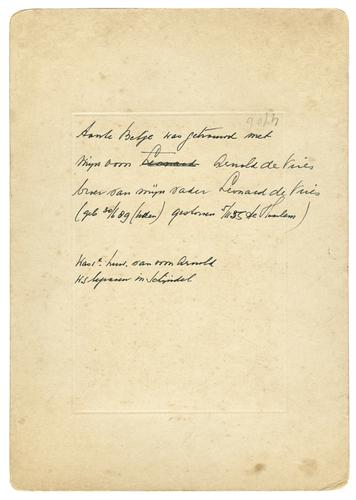 4406
Tante Betje was getrouwd met
mijn oom ~~Leonard~~ Arnold de Vries
broer van mijn vader Leonard de Vries
(geb 30/6 89 (Leiden) gestorven 5/11 35 te Haarlem)
Was 1e huw. van oom Arnold
is begraven in Schijndel